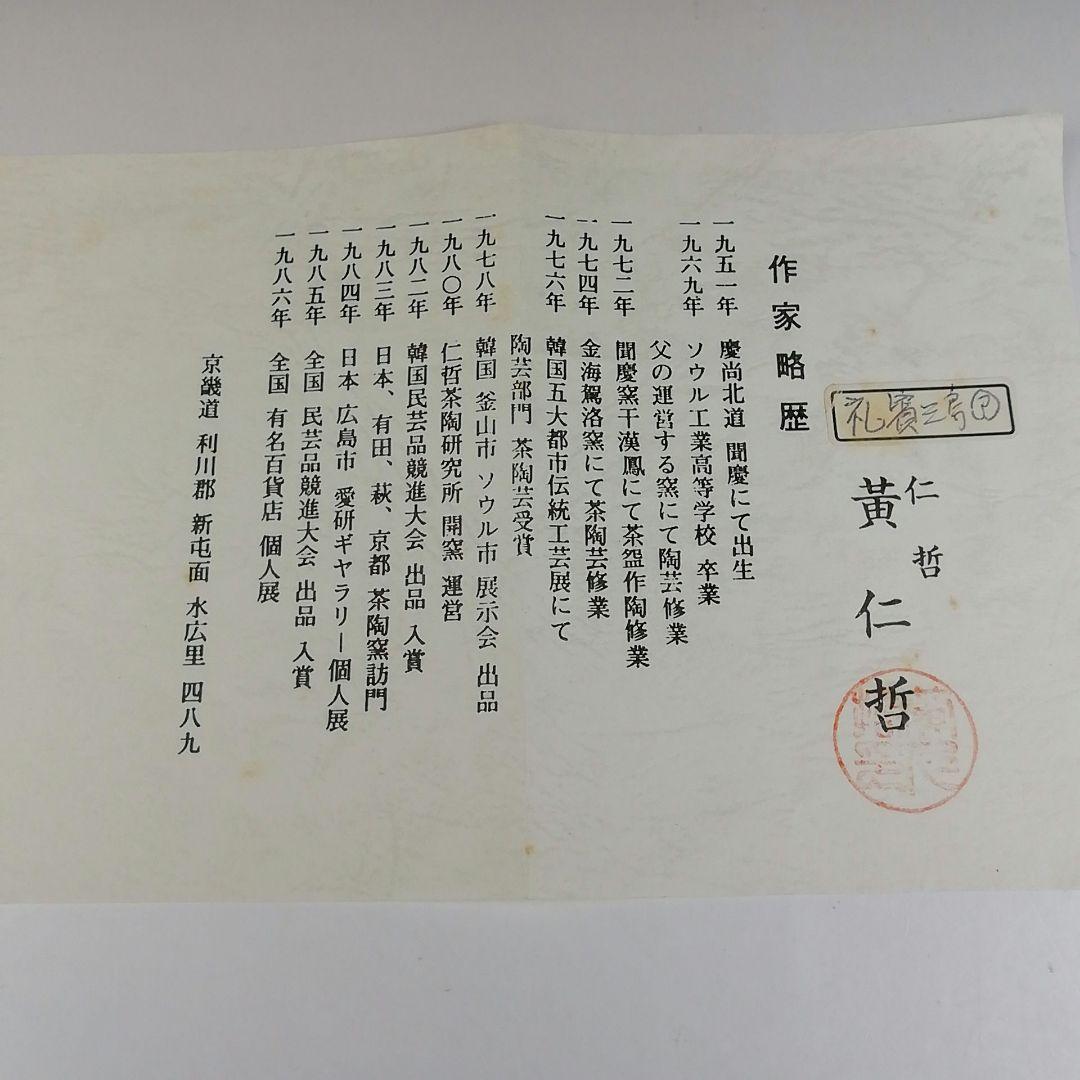 礼賓三島
仁哲
黃仁哲
作家略歴
一九五一年 慶尚北道 聞慶にて出生
一九六九年 ソウル工業高等学校 卒業
父の運営する窯にて陶芸修業
一九七二年 聞慶窯干漢鳳にて茶盌作陶修業
一九七四年 金海駕洛窯にて茶陶芸修業
一九七六年 韓国五大都市伝統工芸展にて
陶芸部門 茶陶芸受賞
一九七八年 韓国 釜山市 ソウル市 展示会 出品
一九八〇年 仁哲茶陶研究所 開窯 運営
一九八二年 韓国民芸品競進大会 出品 入賞
一九八三年 日本、有田、萩、京都 茶陶窯訪門
一九八四年 日本 広島市 愛研ギャラリー個人展
一九八五年 全国 民芸品競進大会 出品 入賞
一九八六年 全国 有名百貨店 個人展
京畿道 利川郡 新屯面 水広里 四八九